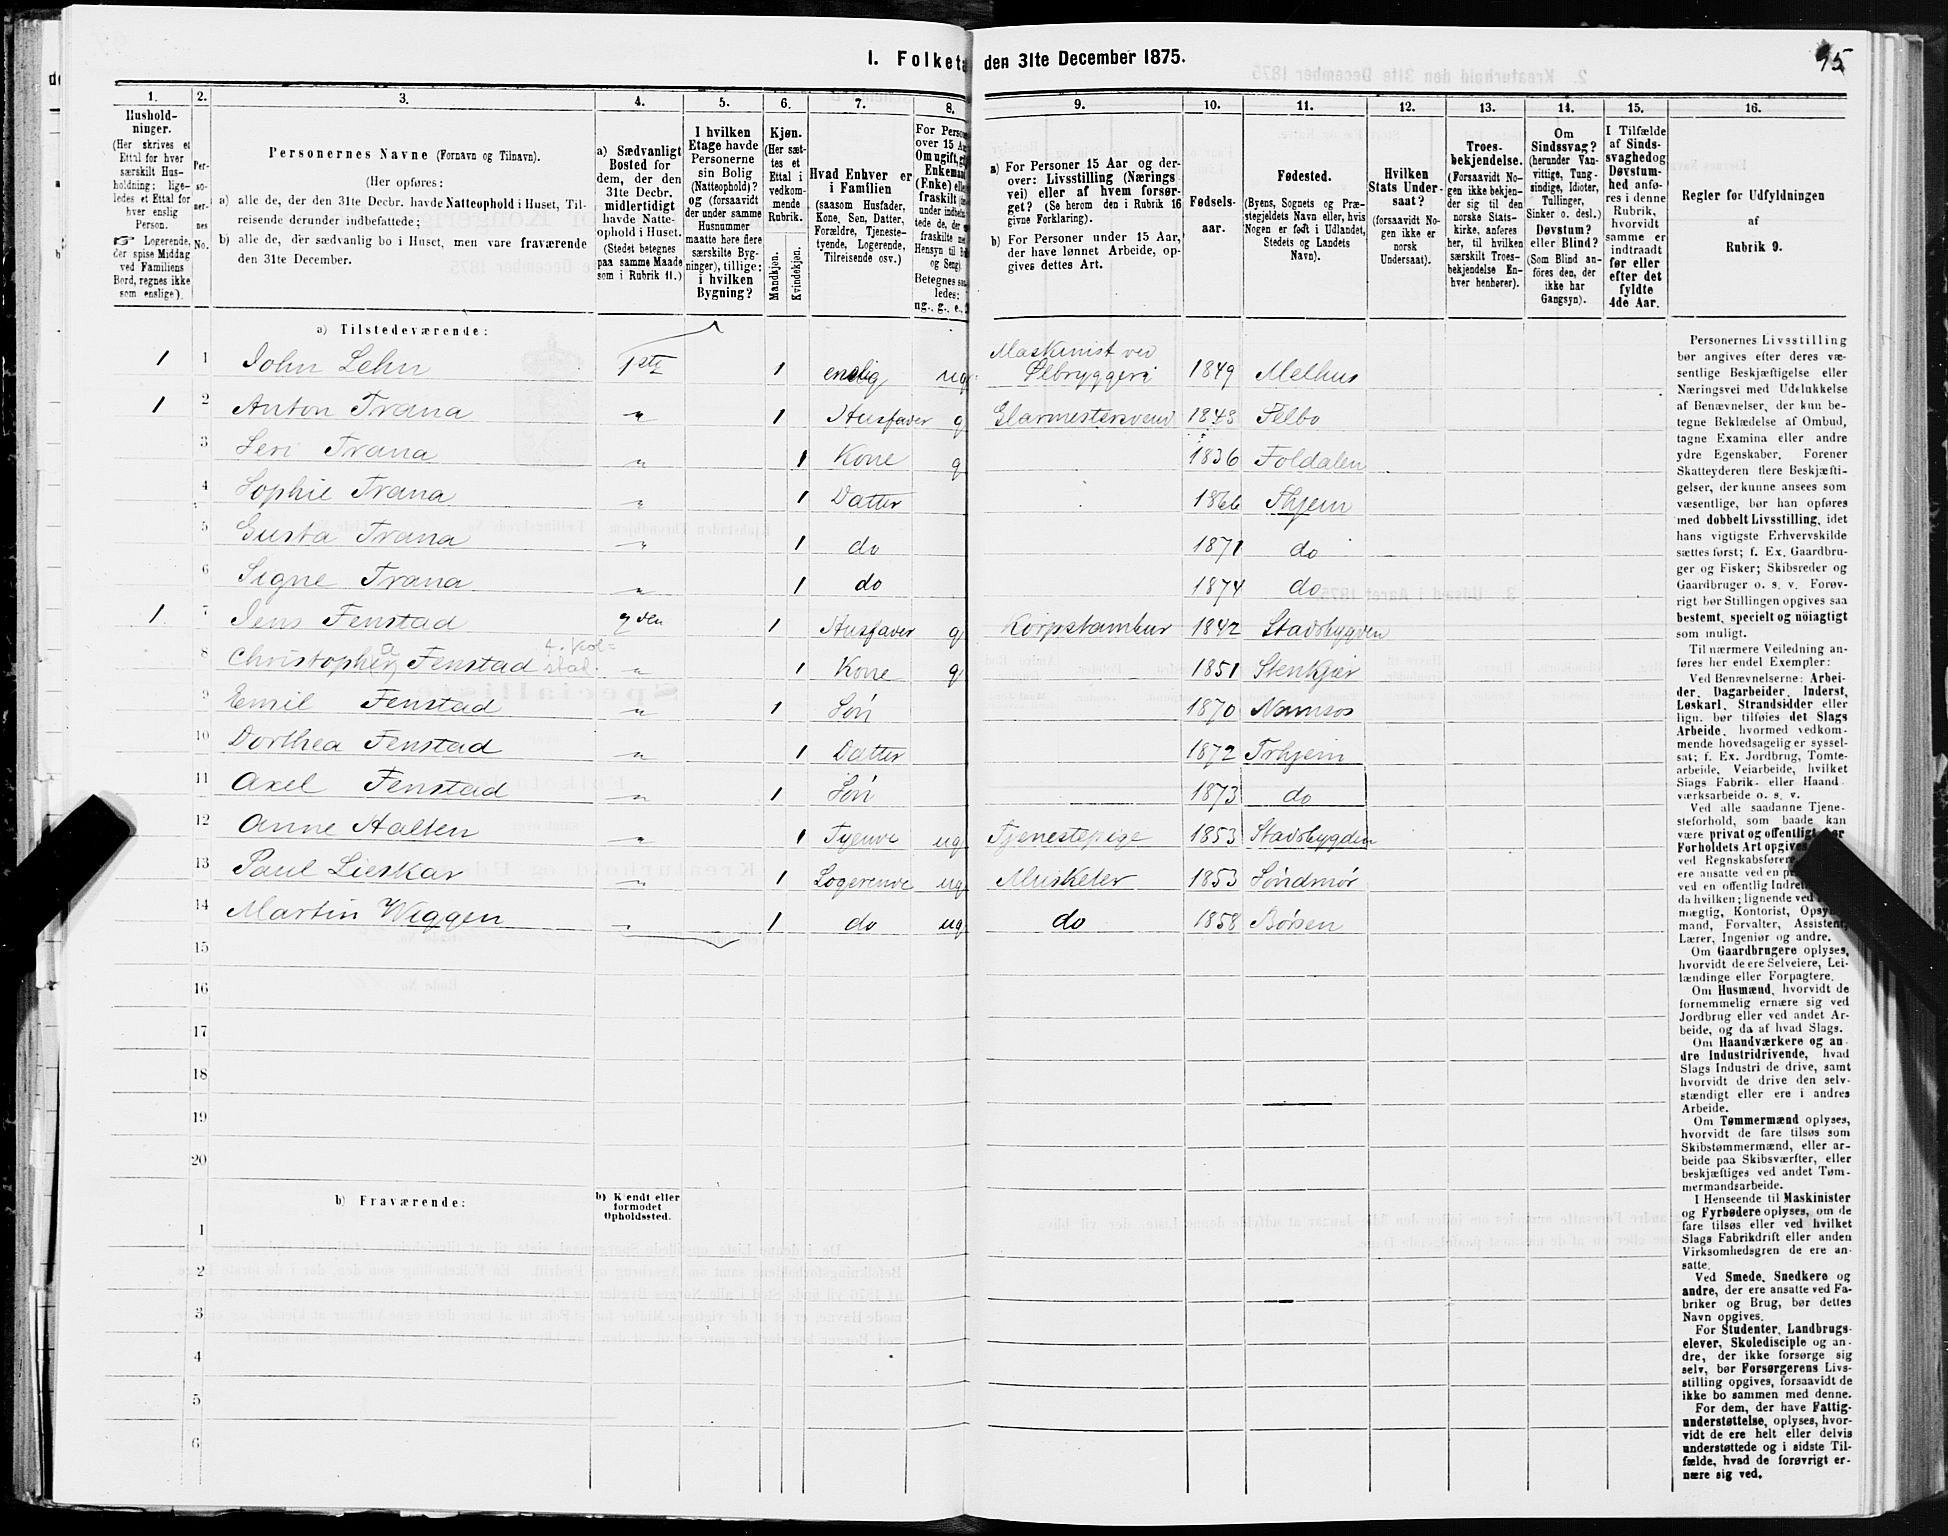 95
I. Folketa den 31te December 1875.
1. 2. 3. 4. 5. 6. 7. 8. 9. 10. 11. 12. 13. 14. 15. 16.
Hushold-
ninger.
(Her skrives et
Ettal for hver
særskilt Hus-
holdning; lige-
ledes et Ettal for
hver enslig
Person.
Logerende,
der spise Middag
ved Familiens
Bord, regnes ikke
som enslige).
Per-
so-
ner-
nes
No.
Personernes Navne (Fornavn og Tilnavn).
(Her opføres:
a) alle de, der den 31te Decbr. havde Natteophold i Huset, Til-
reisende derunder indbefattede;
b) alle de, der sædvanlig bo i Huset, men vare fraværende
den 31te December.
a) Sædvanligt
Bosted for
dem, der den
31te Decbr.
midlertidigt
havde Natte-
ophold i Huset.
(Stedet betegnes
paa samme Maade
som i Rubrik 11.)
I hvilken
Etage havde
Personerne
sin Bolig
(Natteophold)?
og (forsaavidt
der under samme
Husnummer
maatte høre flere
særskilte Byg-
ninger), tillige:
i hvilken
Bygning?
Kjøn.
(Her sæt-
tes et
Ettal i
vedkom-
mende
Rubrik.
Mandkjøn.
Kvindekjøn.
Hvad Enhver er
i Familien
(saasom Husfader,
Kone, Søn, Datter,
Forældre, Tjeneste-
tyende, Logerende,
Tilreisende osv.)
For Perso
over 15 Aa
Om ugift, g
Enkeman
(Enke) ell
fraskilt
under
tede de, der
fraskilte
Hensyn til
og Seng).
Betegnes
ledes:
ug., g., e.,
a) For Personer 15 Aar og der-
over: Livsstilling (Nærings
vei) eller af hvem forsør-
get? (Se herom den i Rubrik 16
givne Forklaring).
b) For Personer under 15 Aar,
der have lønnet Arbeide, op-
gives dettes Art.
Fødsels-
aar.
Fødested.
(Byens, Sognets og Præ-
stegjeldets Navn eller, hvis
Nogen er født i Udlandet,
Stedets og Landets
Navn).
Hvilken
Stats Under-
saat?
(forsaavidt No-
gen ikke er
norsk
Undersaat).
Troes-
bekjendelse.
(Forsaavidt No-
gen ikke bekjen-
der sig til den
norske Stats-
kirke, anføres
her, til hvilken
særskilt Troes-
bekjendelse En-
hver henhører).
Om
Sindssvag?
(herunder Van-
vittige, Tung-
sindige, Idioter,
Tullinger,
Sinker o. desl.)
Døvstum?
eller Blind?
(Som Blind an-
føres den, der
ikke har
Gangsyn).
I Tilfælde
af Sinds-
svaghedog
Døvstum-
hed anfø-
res i denne
Rubrik,
hvorvidt
samme er
indtraadt
før eller
efter det
fyldte
4de Aar.
Regler for Udfyldningen
af
Rubrik 9.
a) Tilstedeværende:
1 1 John Lehn 1ste 1 enslig ug Maskinist ved Ølbryggeri 1849 Melhus
1 2 Anton Trana " 1 Husfader g Glarmestersvend 1843 Felbo
3 Seri Trana " 1 Kone g 1836 Foldalen
4 Sophie Trana " 1 Datter 1866 Thjem
5 Gusta Trana " 1 do 1871 do
6 Signe Trana " 1 do 1874 do
1 7 Jens Fenstad 2den 1 Husfader g Korpstambur 1842 Stadsbygden
8 Christophea Fenstad " 1 Kone g 1851 Stenkjær
9 Emil Fenstad " 1 Søn 1870 Namsos
10 Dorthea Fenstad " 1 Datter 1872 Trhjem
11 Axel Fenstad " 1 Søn 1873 do
12 Anne Halten " 1 Tjende ug Tjenestepige 1853 Stadsbygden
13 Paul Lieskar " 1 Logerende ug Musketer 1853 Søndmør
14 Martin Wiggen " 1 do ug do 1858 Børsen
15
16
17
18
19
20
b) Fraværende:
b) Kjendt eller
formodet
Opholdssted.
1
2
3
4
5
6
Personernes Livsstilling
bør angives efter deres væ-
sentlige Beskjæftigelse eller
Næringsvei med Udelukkelse
af Benævnelser, der kun be-
tegne Beklædelse af Ombud,
tagne Examina eller andre
ydre Egenskaber. Forener
Skatteyderen flere Beskjæfti-
gelser, der kunne ansees som
væsentlige, bør han opføres
med dobbelt Livsstilling, idet
hans vigtigste Erhvervskilde
sættes først; f. Ex. Gaardbru-
ger og Fisker; Skibsreder og
Gaardbruger o. s. v. Forøv-
rigt bør Stillingen opgives saa
bestemt, specielt og nöiagtigt
som muligt.
Til nærmere Veiledning an-
føres her endel Exempler:
Ved Benævnelserne: Arbei-
der, Dagarbeider, Inderst,
Løskarl, Strandsidder eller
lign. bør tilføies det Slags
Arbeide, hvormed vedkom-
mende hovedsagelig er syssel-
sat; f. Ex. Jordbrug, Tomte-
arbeide, Veiarbeide, hvilket
Slags Fabrik- eller Haand
værksarbeide o. s. v.
Ved alle saadanne Tjene-
steforhold, som baade kan
være privat og offentligt, bør
Forholdets Art opgives
ved Regnskabsførere,
ere ansatte ved en
ved en offentlig Indret
da hvilken; lignende ved
mægtig, Kontorist, Opsyns
mand, Forvalter, Assistent,
Lærer, Ingeniør og andre.
Om Gaardbrugere oplyses,
hvorvidt de ere Selveiere, Lei-
lændinge eller Forpagtere.
Om Husmænd, hvorvidt de
fornemmelig ernære sig ved
Jordbrug eller ved andet Ar-
beide, og da af hvad Slags.
Om Haandværkere og an-
dre Industridrivende, hvad
Slags Industri de drive, samt
hvorvidt de drive den selv-
stændigt eller ere i andres
Arbeide.
Om Tømmermænd oplyses,
hvorvidt de fare tilsøs som
Skibstømmermænd, eller ar-
beide paa Skibsværfter, eller
beskjæftiges ved andet Tøm-
mermandsarbeide.
I Henseende til Maskinister
og Fyrbødere oplyses, om de
fare tilsøs eller ved hvilket
Slags Fabrikdrift eller anden
Virksomhedsgren de ere an-
satte.
Ved Smede, Snedkere og
andre, der ere ansatte ved Fa-
briker og Brug, bør dettes
Navn opgives.
For Studenter, Landbrugs-
elever, Skoledisciple og an-
dre, der ikke forsørge sig
selv, bør Forsørgerens Livs-
stilling opgives, forsaavidt de
ikke bo sammen med denne.
For dem, der have Fattig-
understøttelse, oplyses, hvor-
vidt de ere helt eller delvis
understøttede og i sidste Til-
fælde, hvad de forøvrigt er-
nære sig ved.